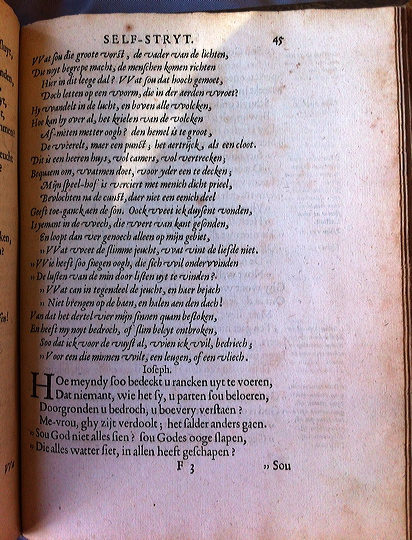 SELF-STRYT. 45
VVat sou die groote vorst, de vader van de lichten,
Die uyt begrepe macht, de menschen komen richten
Hier in dit leege dal? VVat sou dat hooch gemoet,
Doch letten op een worm, die in der aerden wroet?
Hy wandelt in de lucht, en boven alle wolcken,
Hoe kan hy over al, het krielen van de volcken
Af-miten metter oogh? den hemel is te groot,
De weerelt, maer een punct; het aertrijck, als een cloot.
Dit is een heeren huys, vol camers, vol vertrecken;
Bequaem om, watmen doet, voor yder een te decken;
Mijn speel-hof is verciert met menich dicht prieel,
Bevlochten na de cunst, daer niet een eenich deel
Geeft toe-ganck aen de son. Oock weet ick duysent vonden,
Is yemant in de wech, die wert van kant gesonden,
En loopt dan ver genoech alleen op mijn gebiet,
„ VVat weet de slimme jeucht, wat vint de liefde niet.
„ VVie heeft soo snegen oogh, die sich wil onderwinden
„ De lusten van de min door listen uyt te vinden?
„ VVat can in tegendeel de jeucht, en haer bejach
„ Niet brengen op de baen, en halen aen den dach!
Van dat het dertel vier mijn sinnen quam bestoken,
En heeft my noyt bedroch, of slim beleyt ontbroken,
Soo dat ick voor de vuyst al, wien ick wil, bedriech;
„ Voor een die minnen wilt, een leugen, of een vliech.
Ioseph.
HOe meyndy soo bedeckt u rancken uyt te voeren,
Dat niemant, wie het sy, u parten sou beloeren,
Doorgronden u bedroch, u boevery verstaen?
Me-vrou, ghy zijt verdoolt; het salder anders gaen.
„ Sou God niet alles sien? sou Godes ooge slapen,
„ Die alles watter siet, in allen heeft geschapen?
F 3 „ Sou